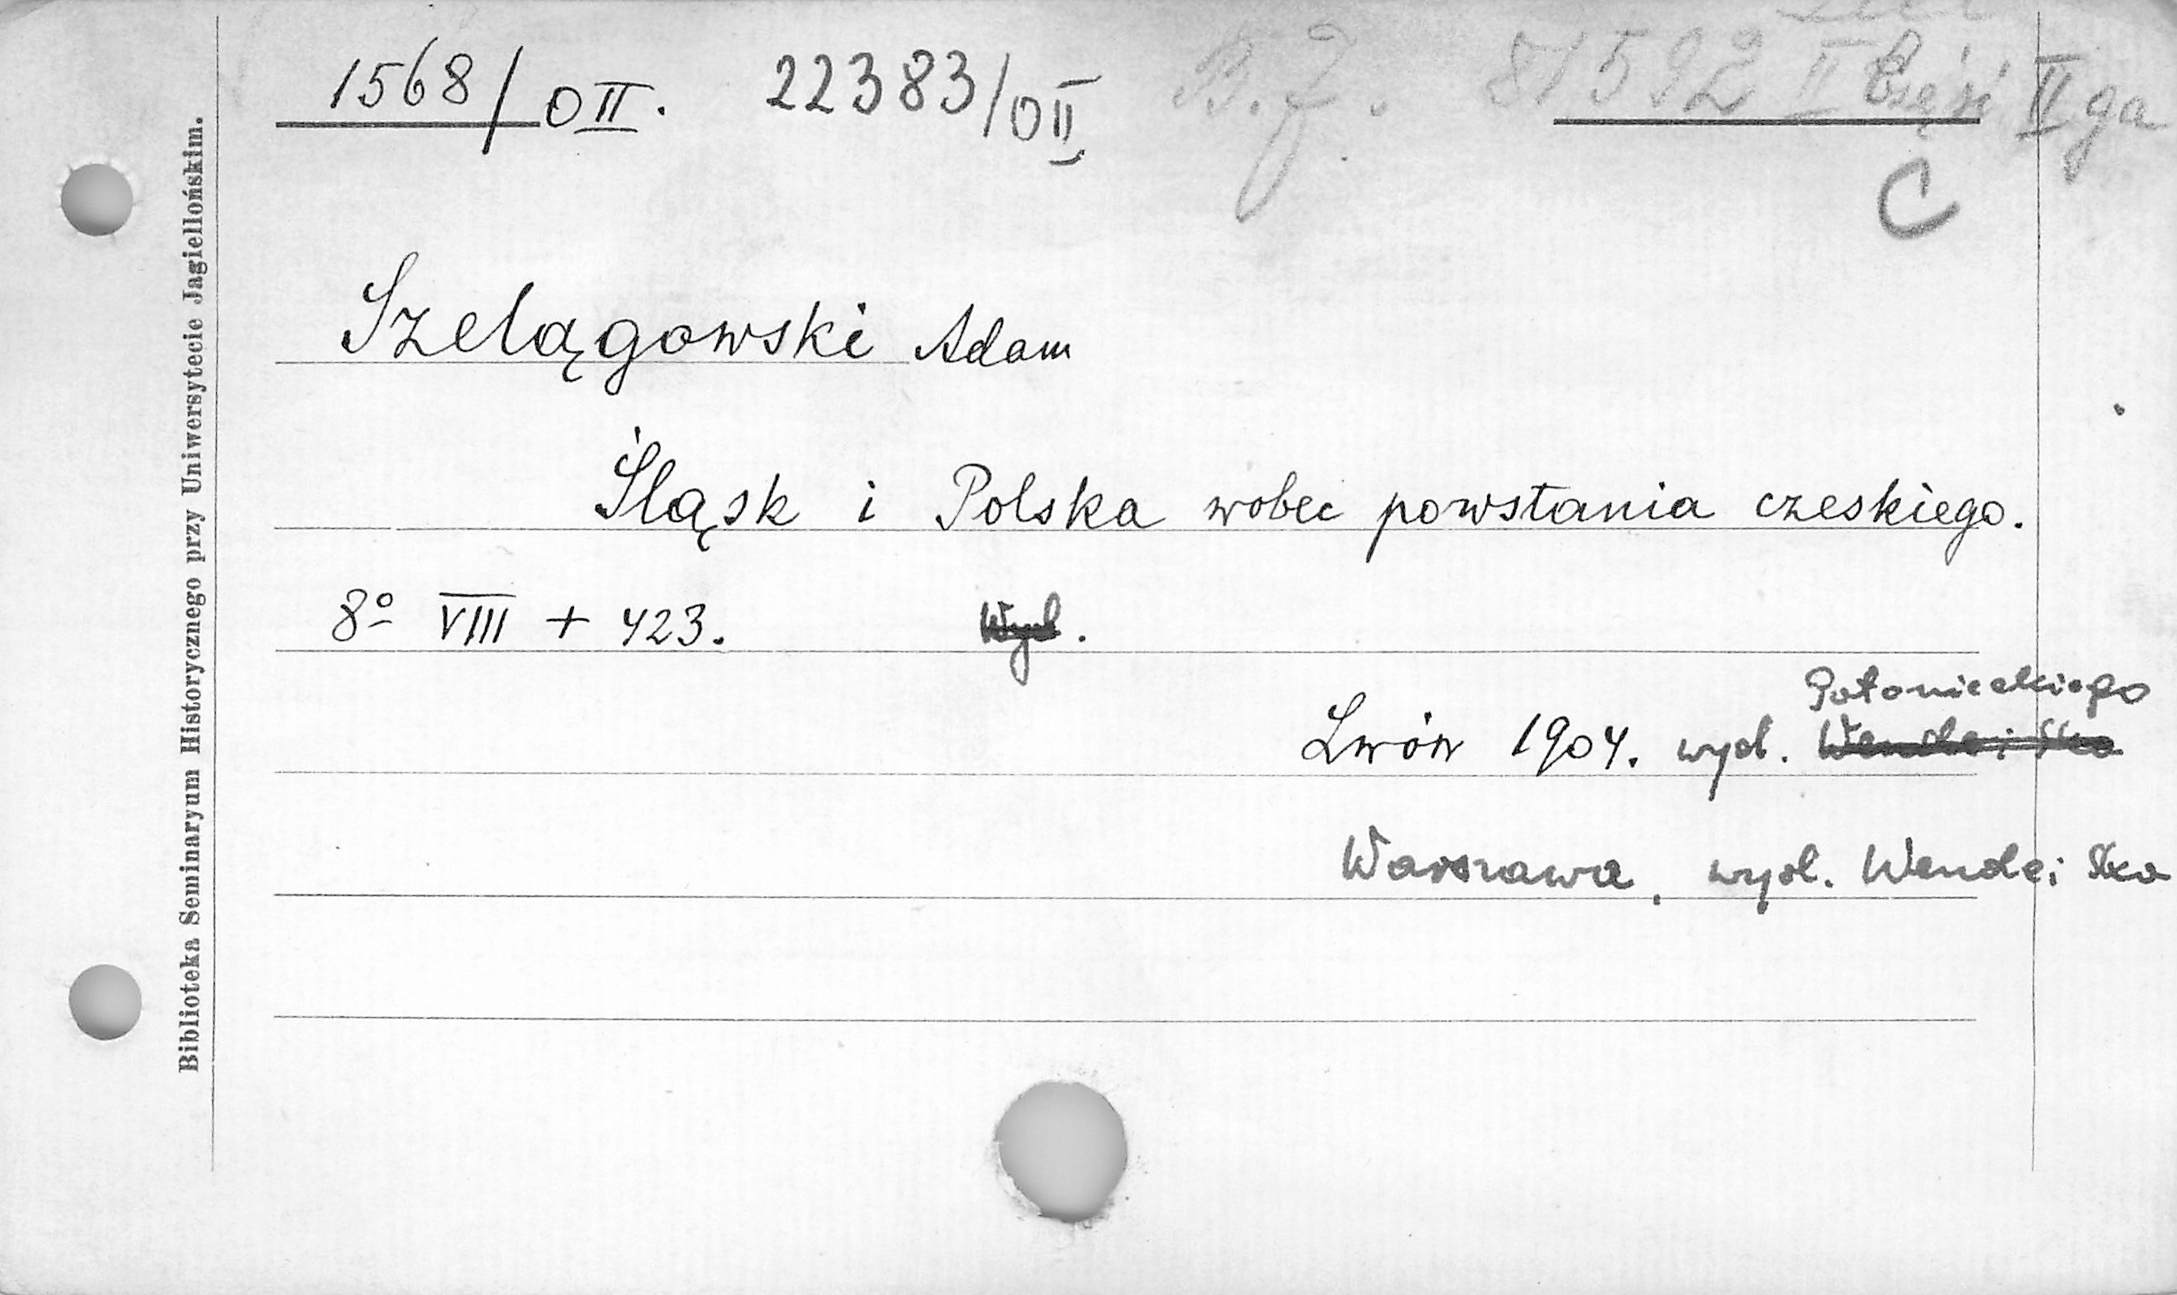 1568/OII. 22383/OII B.J. 81592 II Część II ga
C
Szelągowski Adam
Śląsk i Polska wobec powstania czeskiego.
8º VIII + 423.
Połonieckiego
Lwów 1904. wyd. Wende i Ska
Warszawa, wyd. Wende i Ska
Biblioteka Seminaryum Historycznego przy Uniwersytecie Jagiellońskim.